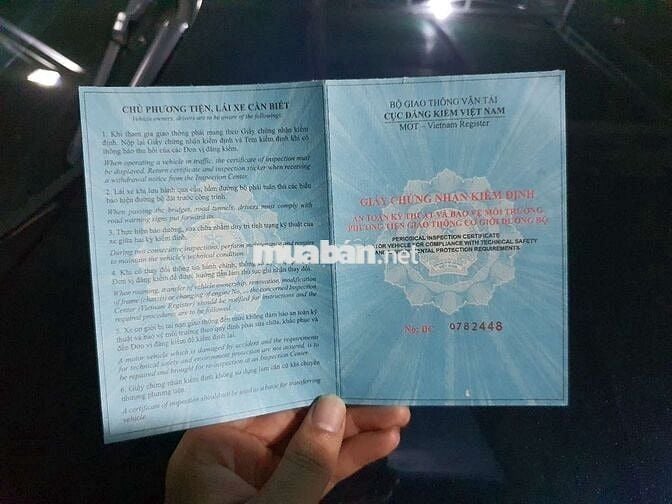 CHỦ PHƯƠNG TIỆN, LÁI XE CẦN BIẾT
Vehicle owners, drivers are to be aware of the followings
1. Khi tham gia giao thông phải mang theo Giấy chứng nhận kiểm
định. Nộp lại Giấy chứng nhận kiểm định và Tem kiểm định khi có
thông báo thu hồi của các Đơn vị đăng kiểm.
When operating a vehicle in traffic, the certificate of inspection must
be displayed. Return certificate and inspection sticker when receiving
a withdrawal notice from the Inspection Center.
2. Lái xe khi lưu hành qua cầu, hầm đường bộ phải tuân thủ các biểu
báo hiệu đường bộ đặt trước công trình.
When passing the bridges, road tunnels, drivers must comply with
road warning signs put forward its.
3. Thực hiện bảo dưỡng, sửa chữa nhằm duy trì tình trạng kỹ thuật của
xe giữa hai kỳ kiểm định.
During two consecutive inspections, perform maintenance and repairs
to maintain the vehicle's technical
4. Khi có thay đổi thông tin hành chính, thông số kỹ
Đơn vị đăng kiểm để được hướng dẫn làm thủ tục ghi nhận thay đổi.
When roaming, transfer of vehicle ownership, renovation, modification
of frame (chassis) or changing of engine No..., the concerned Inspection
Center (Vietnam Register) should be notified for instructions and the
required procedure are to be followed.
5. Xe cơ giới bị tai nạn giao thông đến mức không đảm bảo an toàn kỹ
thuật và bảo vệ môi trường theo quy định phải sửa chữa, khắc phục và
đến Đơn vị đăng kiểm để kiểm định lại.
A motor vehicle which is damaged by accident and the requirements
for technical safety and environment protection are not assured, is to
be repaired and brought for re-inspection at an Inspection Center.
6. Giấy chứng nhận kiểm định không sử dụng làm căn cứ khi chuyển
nhượng phương tiện.
A certificate of inspection should not be used as a base for transferring
vehicle.
BỘ GIAO THÔNG VẬN TẢI
CỤC ĐĂNG KIỂM VIỆT NAM
MOT – Vietnam Register
GIẤY CHỨNG NHẬN KIỂM ĐỊNH
AN TOÀN KỸ THUẬT VÀ BẢO VỆ MÔI TRƯỜNG
PHƯƠNG TIỆN GIAO THÔNG CƠ GIỚI ĐƯỜNG BỘ
PERIODICAL INSPECTION CERTIFICATE
VEHICLE FOR COMPLIANCE WITH TECHNICAL SAFETY
AND ENVIRONMENTAL PROTECTION REQUIREMENTS
No: DC 0782448
muaban.net